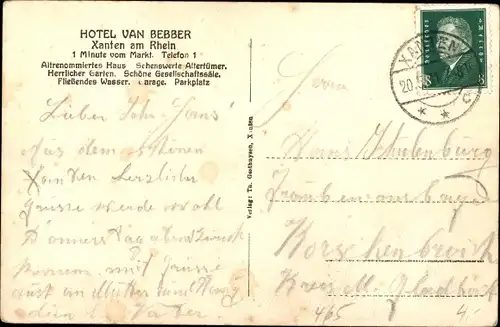 HOTEL VAN BEBBER
Xanten am Rhein
1 Minute vom Markt. Telefon 1
Altrenommiertes Haus Sehenswerte Altertümer.
Herrlicher Garten. Schöne Gesellschaftssäle.
Fließendes Wasser. Garage. Parkplatz
Lieber Sohn Hans
Aus dem schönen
Xanten herzliche
Grüsse werde wohl
Donnerstag abend zurück
kommen mit Grüsse
auch an Mutter
dein Vater.
Verlag: Th. Gesthuysen, Xanten
XANTEN
20.
c
Deutsches
8
Herrn
Hans Schulenburg
Korschenbroich
Kreis M. Gladbach
465
4.